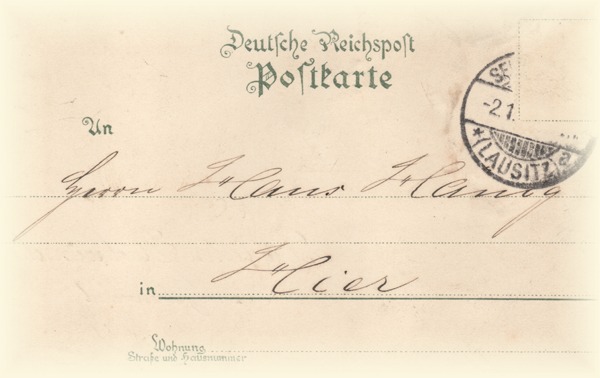 Deutsche Reichspost
Postkarte
SE
-2.1.
*(LAUSITZ)a
An
Herrn Hans Hanig
in Hier
Wohnung
Straße und Hausnummer